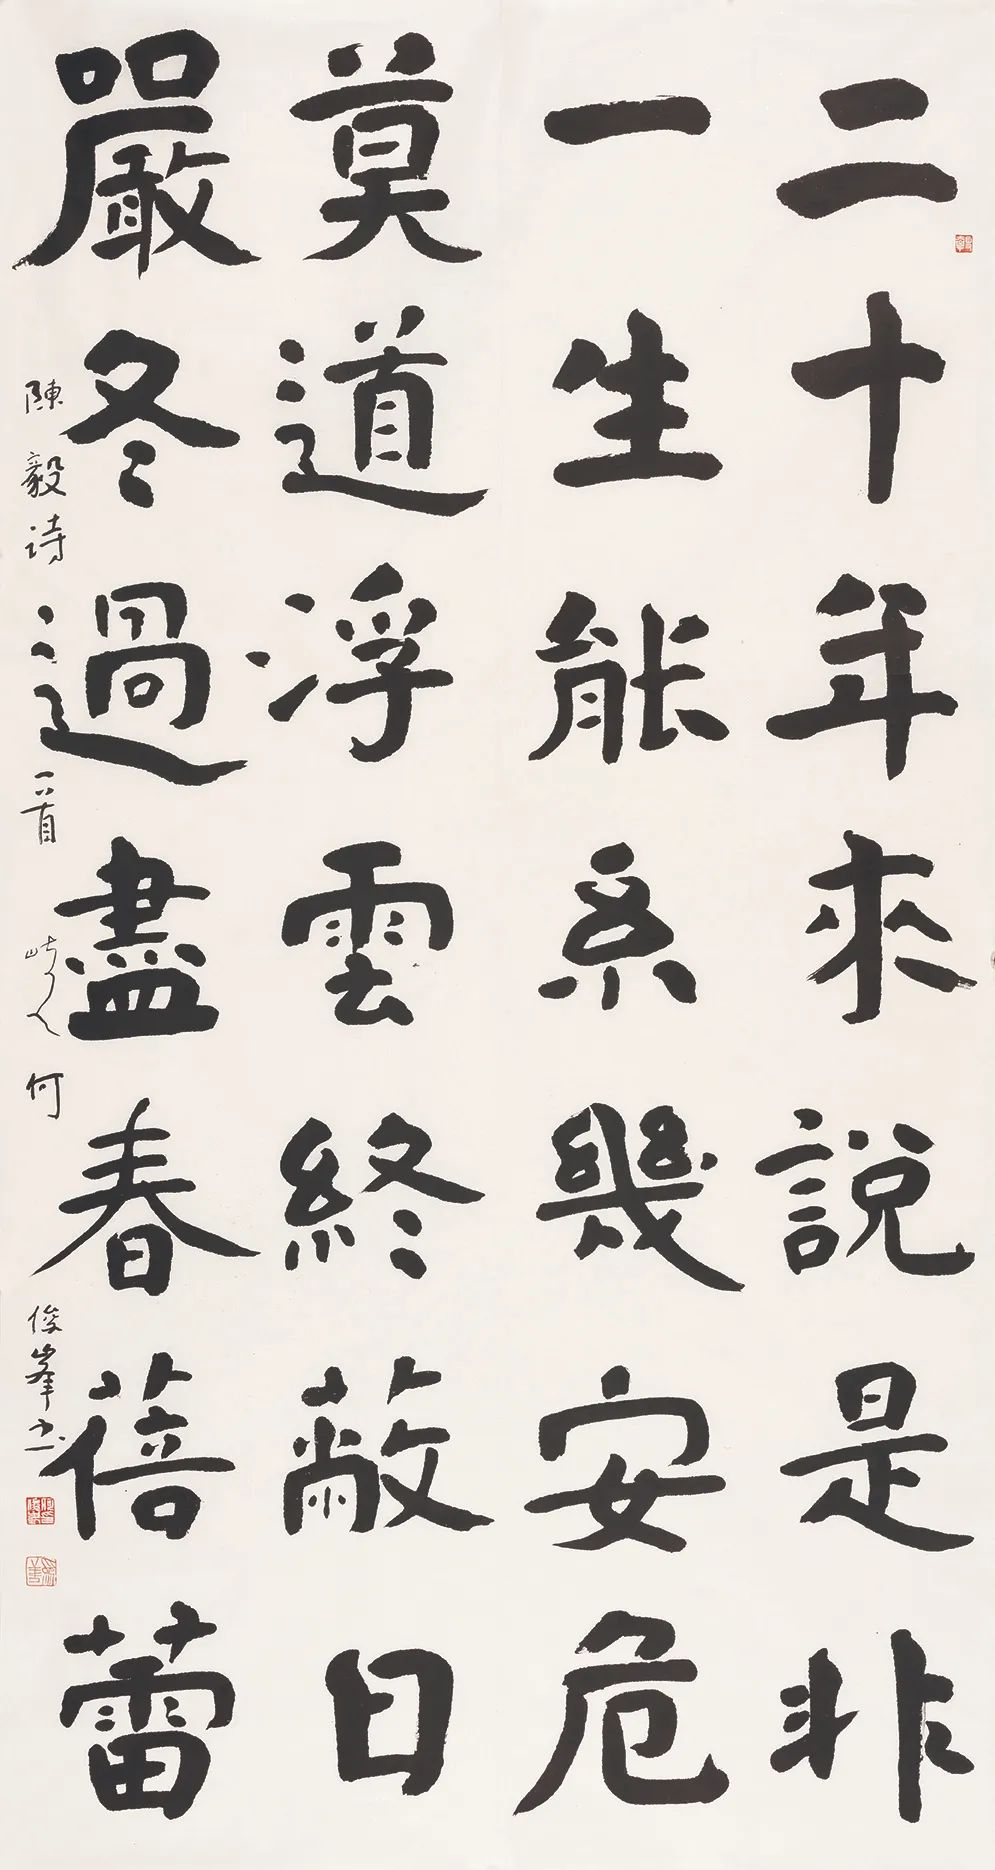 二十年來說是非
一生能系幾安危
莫道浮雲終蔽日
嚴冬過盡春蓓蕾
陳毅诗一首 岐人 何俊峯书